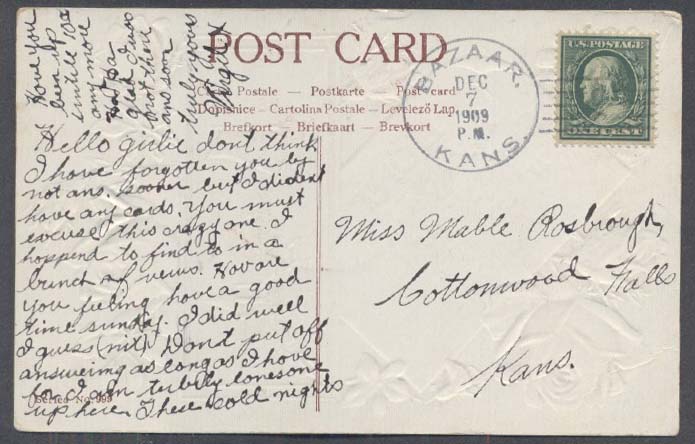 POST CARD
Carte Postale — Postkarte — Post-card
Dopisnice — Cartolina Postale — Levelező Lap.
Brefkort — Briefkaart — Brevkort
BAZAAR,
DEC
7
1909
P.M.
KANS.
U.S. POSTAGE
ONE CENT
Miss Mable Rosbrough,
Cottonwood Falls
Kans.
Hello girlie dont think
I have forgotten you by
not ans. sooner but I dident
have any cards. You must
excuse this crazy one. I
hoppend to find to in a
bunch of views. How are
you feeling have a good
time sunday. I did well
I guess (nit). Dont put off
answering as long as I have
for I am turbily lonesome
up here These cold nights
Series No. 
Have you
been up
untill 10a
any more
Ha Ha
glad I was
out there
ans soon
truly yours